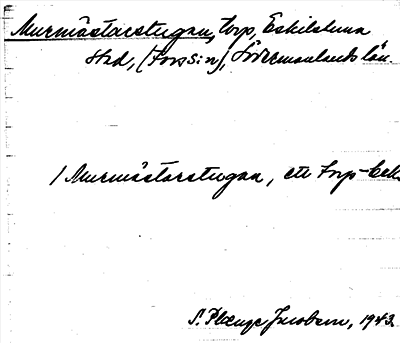 Murmästarstugan, torp, Eskilstuna
stad, (Fors s:n), Södermanlands län.
/ Murmästarstugan, ett torp-
S. Plænge Jacobson, 1943.